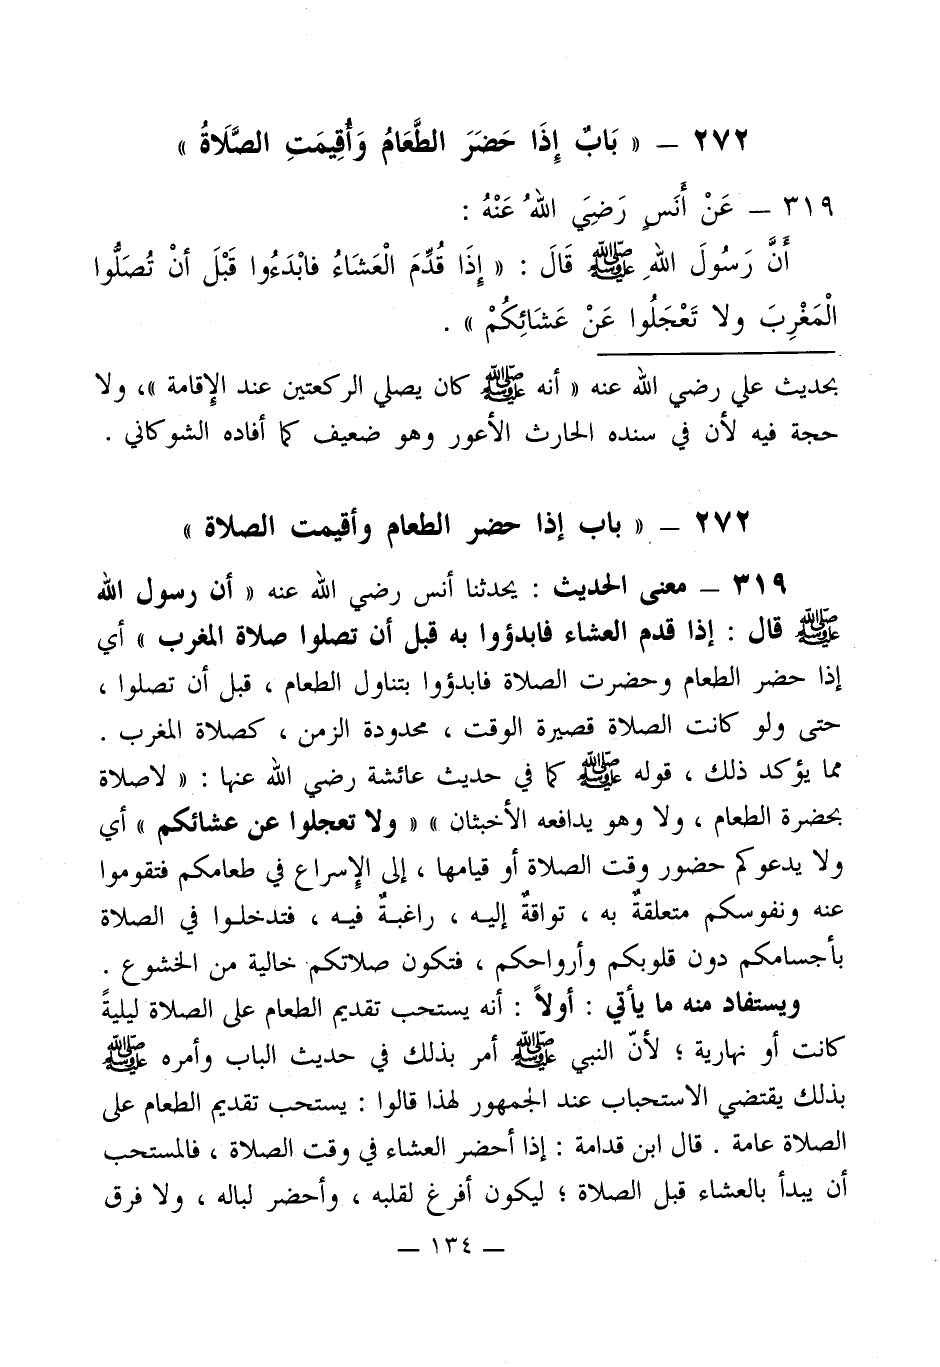 ٢٧٢ – « بَابٌ إِذَا حَضَرَ الطَّعَامُ وَأُقِيمَتِ الصَّلَاةُ »
٣١٩ – عَنْ أَنَسٍ رَضِيَ اللهُ عَنْهُ :
أَنَّ رَسُولَ اللهِ ﷺ قَالَ : « إِذَا قُدِّمَ الْعَشَاءُ فابْدَءُوا قَبْلَ أنْ تُصَلُّوا
الْمَغْرِبَ ولا تَعْجَلُوا عَنْ عَشَائِكُمْ » .
بحديث علي رضي الله عنه « أنه ﷺ كان يصلي الركعتين عند الإقامة »، ولا
حجة فيه لأن في سنده الحارث الأعور وهو ضعيف كما أفاده الشوكاني .
٢٧٢ – « باب إذا حضر الطعام وأقيمت الصلاة »
٣١٩ – معنى الحديث : يحدثنا أنس رضي الله عنه « أن رسول الله
ﷺ قال : إذا قدم العشاء فابدؤوا به قبل أن تصلوا صلاة المغرب » أي
إذا حضر الطعام وحضرت الصلاة فابدؤوا بتناول الطعام ، قبل أن تصلوا ،
حتى ولو كانت الصلاة قصيرة الوقت ، محدودة الزمن ، كصلاة المغرب .
مما يؤكد ذلك ، قوله ﷺ كما في حديث عائشة رضي الله عنها : « لاصلاة
بحضرة الطعام ، ولا وهو يدافعه الأخبثان » « ولا تعجلوا عن عشائكم » أي
ولا يدعوكم حضور وقت الصلاة أو قيامها ، إلى الإسراع في طعامكم فتقوموا
عنه ونفوسكم متعلقةٌ به ، تواقةٌ إليه ، راغبةٌ فيه ، فتدخلوا في الصلاة
بأجسامكم دون قلوبكم وأرواحكم ، فتكون صلاتكم خالية من الخشوع .
ويستفاد منه ما يأتي : أولاً : أنه يستحب تقديم الطعام على الصلاة ليليةً
كانت أو نهارية ؛ لأنّ النبي ﷺ أمر بذلك في حديث الباب وأمره ﷺ
بذلك يقتضي الاستحباب عند الجمهور لهذا قالوا : يستحب تقديم الطعام على
الصلاة عامة . قال ابن قدامة : إذا أحضر العشاء في وقت الصلاة ، فالمستحب
أن يبدأ بالعشاء قبل الصلاة ؛ ليكون أفرغ لقلبه ، وأحضر لباله ، ولا فرق
– ١٣٤ –